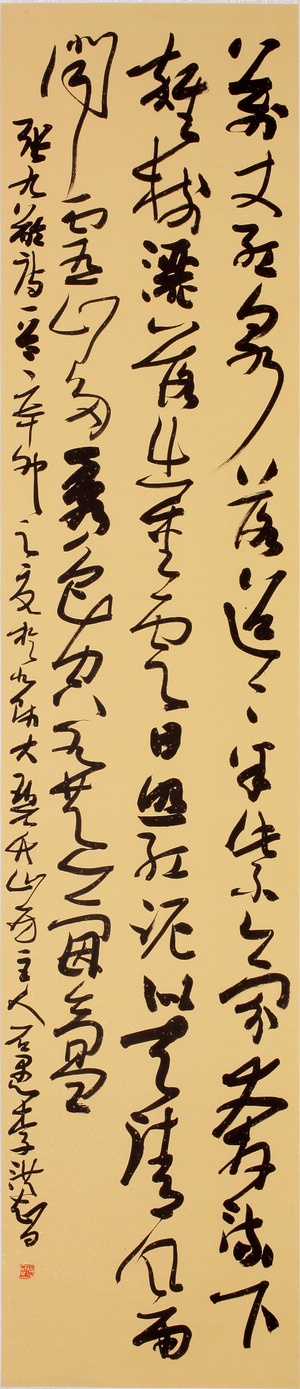 萬丈紅泉落迢〻半紫氛奔流下
雜樹灑落出重雲日照虹霓似天清風雨
聞靈山多秀色空水共氤氳
張九齡詩一首辛卯之夏於北師大 山房主人 李洪智